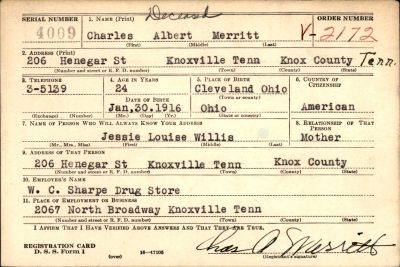 SERIAL NUMBER 1. NAME (Print) Deceased ORDER NUMBER
4009 Charles Albert Merritt V-2172
(First) (Middle) (Last)
2. ADDRESS (Print)
206 Henegar St Knoxville Tenn Knox County Tenn.
(Number and street or R. F. D. number) (Town) (County) (State)
3. TELEPHONE 4. AGE IN YEARS 5. PLACE OF BIRTH 6. COUNTRY OF CITIZENSHIP
3-5139 24 Cleveland Ohio
(Town or county)
DATE OF BIRTH
Jan,30.1916 Ohio American
(Exchange) (Number) (Mo.) (Day) (Yr.) (State or country)
7. NAME OF PERSON WHO WILL ALWAYS KNOW YOUR ADDRESS 8. RELATIONSHIP OF THAT PERSON
Jessie Louise Willis Mother
(Mr., Mrs., Miss) (First) (Middle) (Last)
9. ADDRESS OF THAT PERSON
206 Henegar St Knoxville Tenn Knox County
(Number and street or R. F. D. number) (Town) (County) (State)
10. EMPLOYER'S NAME
W. C. Sharpe Drug Store
11. PLACE OF EMPLOYMENT OR BUSINESS
2067 North Broadway Knoxville Tenn
(Number and street or R. F. D. number) (Town) (County) (State)
I AFFIRM THAT I HAVE VERIFIED ABOVE ANSWERS AND THAT THEY ARE TRUE.
REGISTRATION CARD
D. S. S. Form 1 (over) 16-17105 Chas A Merritt
(Registrant's signature)